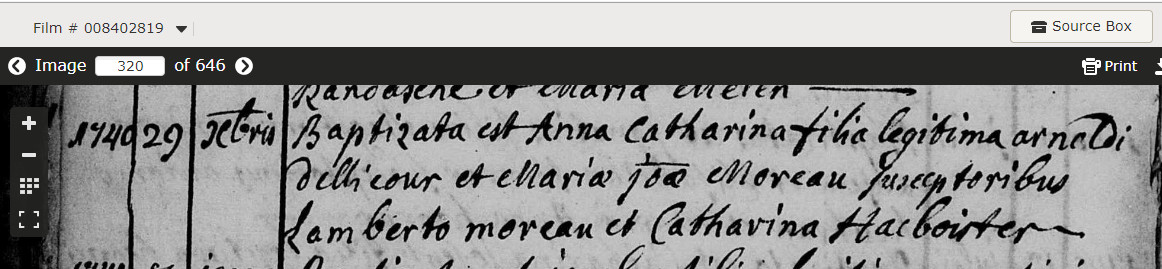 Film # 008402819
Source Box
Image 320 of 646
Print
Randaxhe et Maria Melen
1740 29 Xbris Baptizata est Anna Catharina filia legitima arnoldi
Dellicour et Mariæ joæ Moreau susceptoribus
Lamberto moreau et Catharina Hacboister